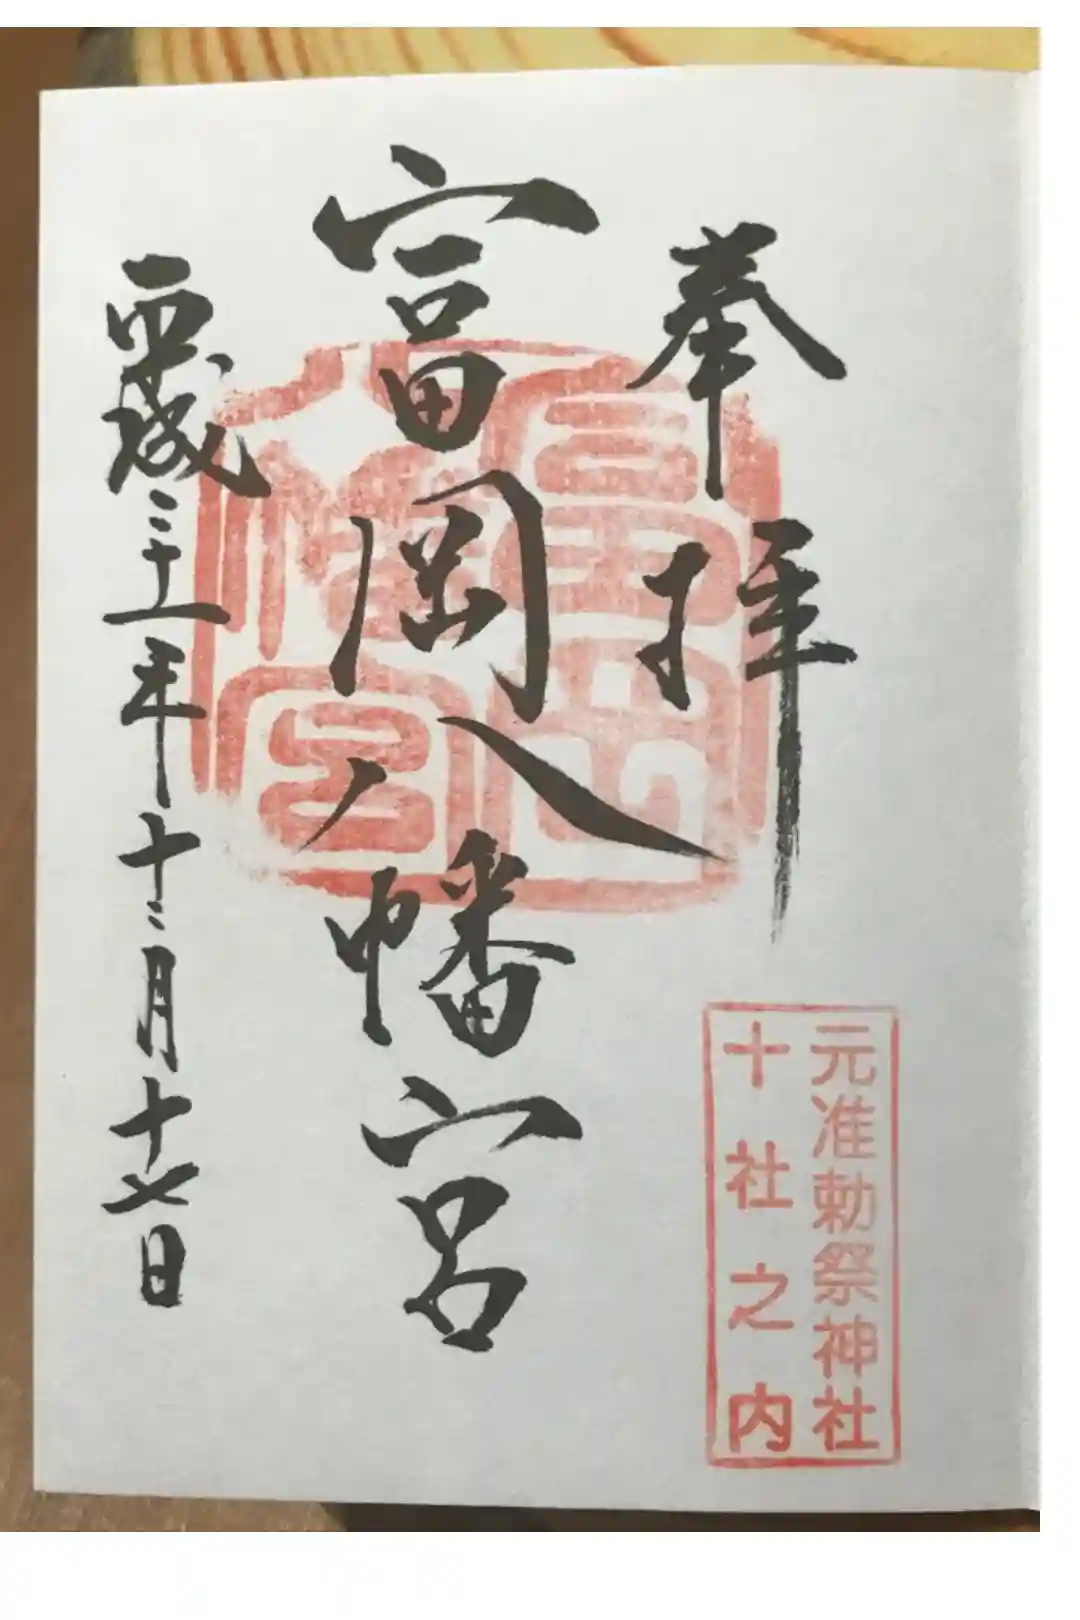 奉拝
富岡八幡宮
平成二十一年十二月十七日
富岡
八幡宮
元准勅祭神社
十社之内